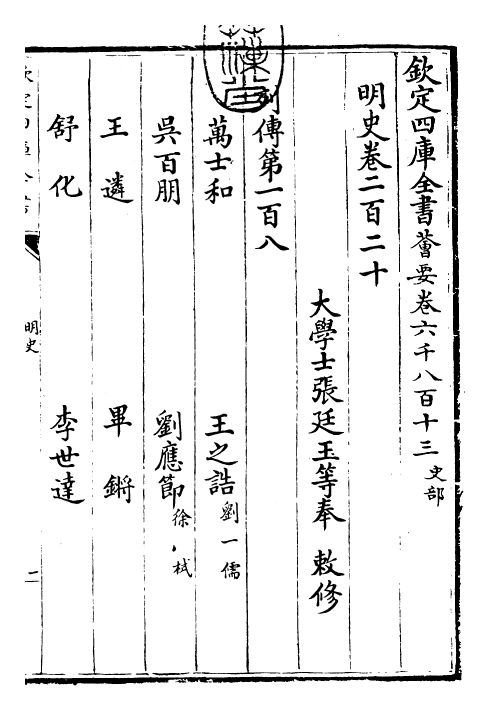 欽定四庫全書薈要卷六千八百十三 史部
明史卷二百二十
大學士張廷玉等奉 敕修
列傳第一百八
萬士和 王之誥 劉一儒
吳百朋 劉應節 徐栻
王遴 畢鏘
舒化 李世達
明史
二